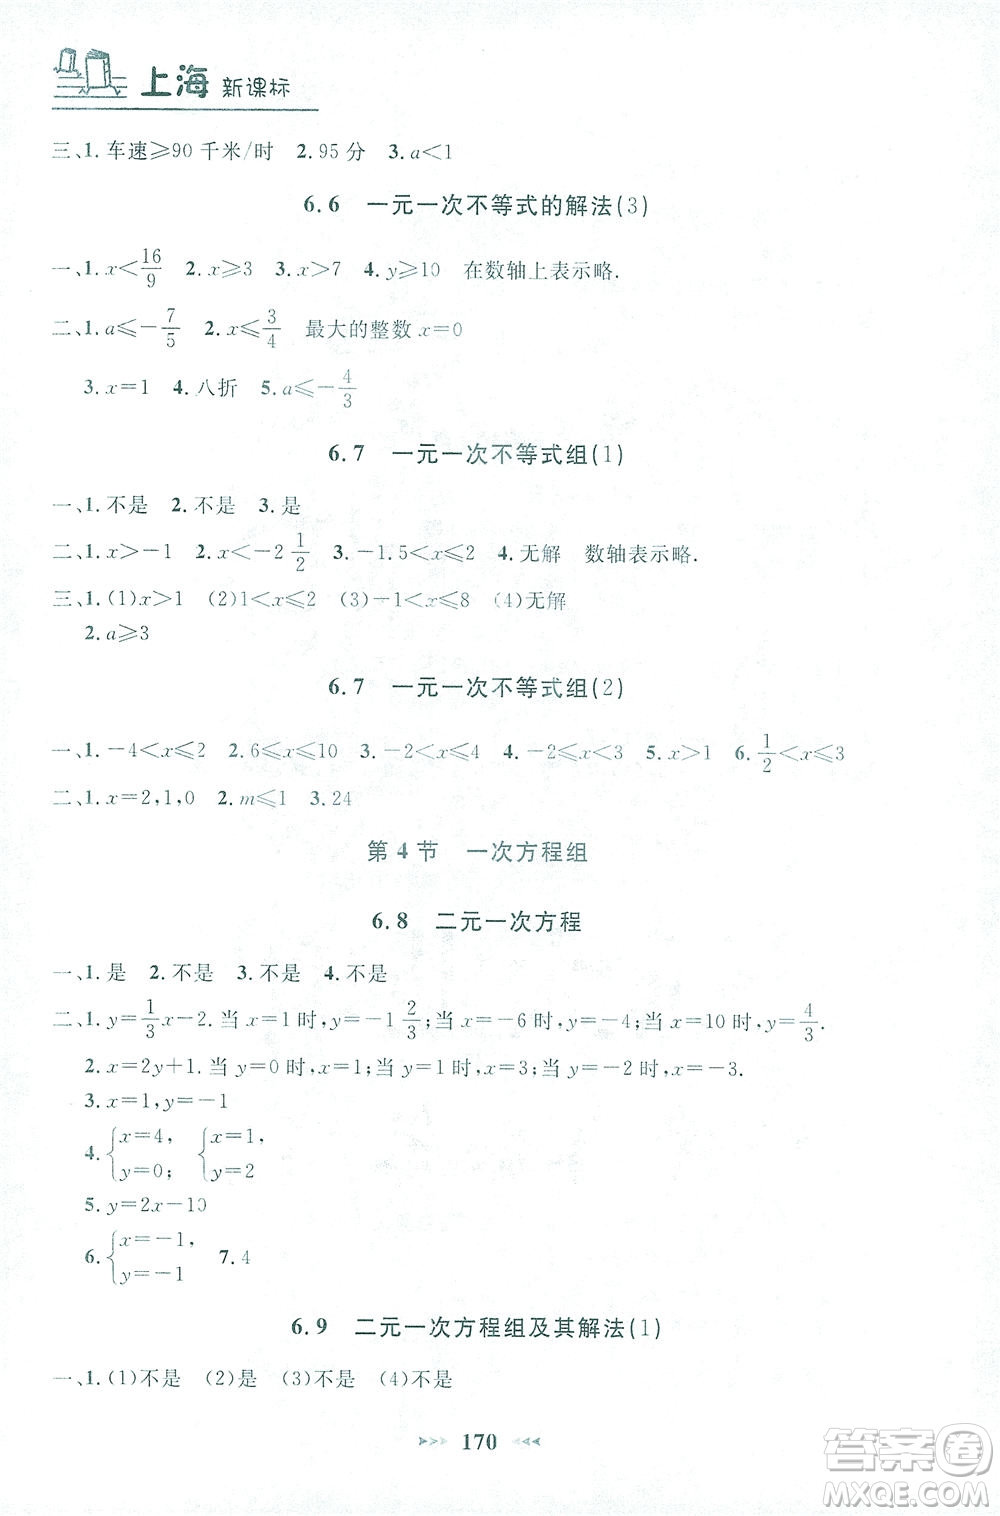 上海 新课标
三、1.车速⩾90千米/时 2.95分 3.a<1
6.6 一元一次不等式的解法(3)
一、1.x<16/9 2.x⩾3 3.x>7 4.y⩾10 在数轴上表示略.
二、1.a⩽-7/5 2.x⩽3/4 最大的整数x=0
3.x=1 4.八折 5.a⩽-4/3
6.7 一元一次不等式组(1)
一、1.不是 2.不是 3.是
二、1.x>-1 2.x<-2 1/2 3.-1.5<x⩽2 4.无解 数轴表示略.
三、1.(1)x>1 (2)1<x⩽2 (3)-1<x⩽8 (4)无解
2.a⩾3
6.7 一元一次不等式组(2)
一、1.-4<x⩽2 2.6⩽x⩽10 3.-2<x<4 4.-2⩽x<3 5.x>1 6.1/2<x⩽3
二、1.x=2,1,0 2.m⩽1 3.24
第4节 一次方程组
6.8 二元一次方程
一、1.是 2.不是 3.不是 4.不是
二、1.y=1/3x-2.当x=1时,y=-1 2/3;当x=-6时,y=-4;当x=10时,y=4/3.
2.x=2y+1.当y=0时,x=1;当y=1时,x=3;当y=-2时,x=-3.
3.x=1,y=-1
4.{x=4, y=0; {x=1, y=2;
5.y=2x-10
6.{x=-1, y=-1 7.4
6.9 二元一次方程组及其解法(1)
一、1.(1)不是 (2)是 (3)不是 (4)不是
170
答案圈
MXQE.COM